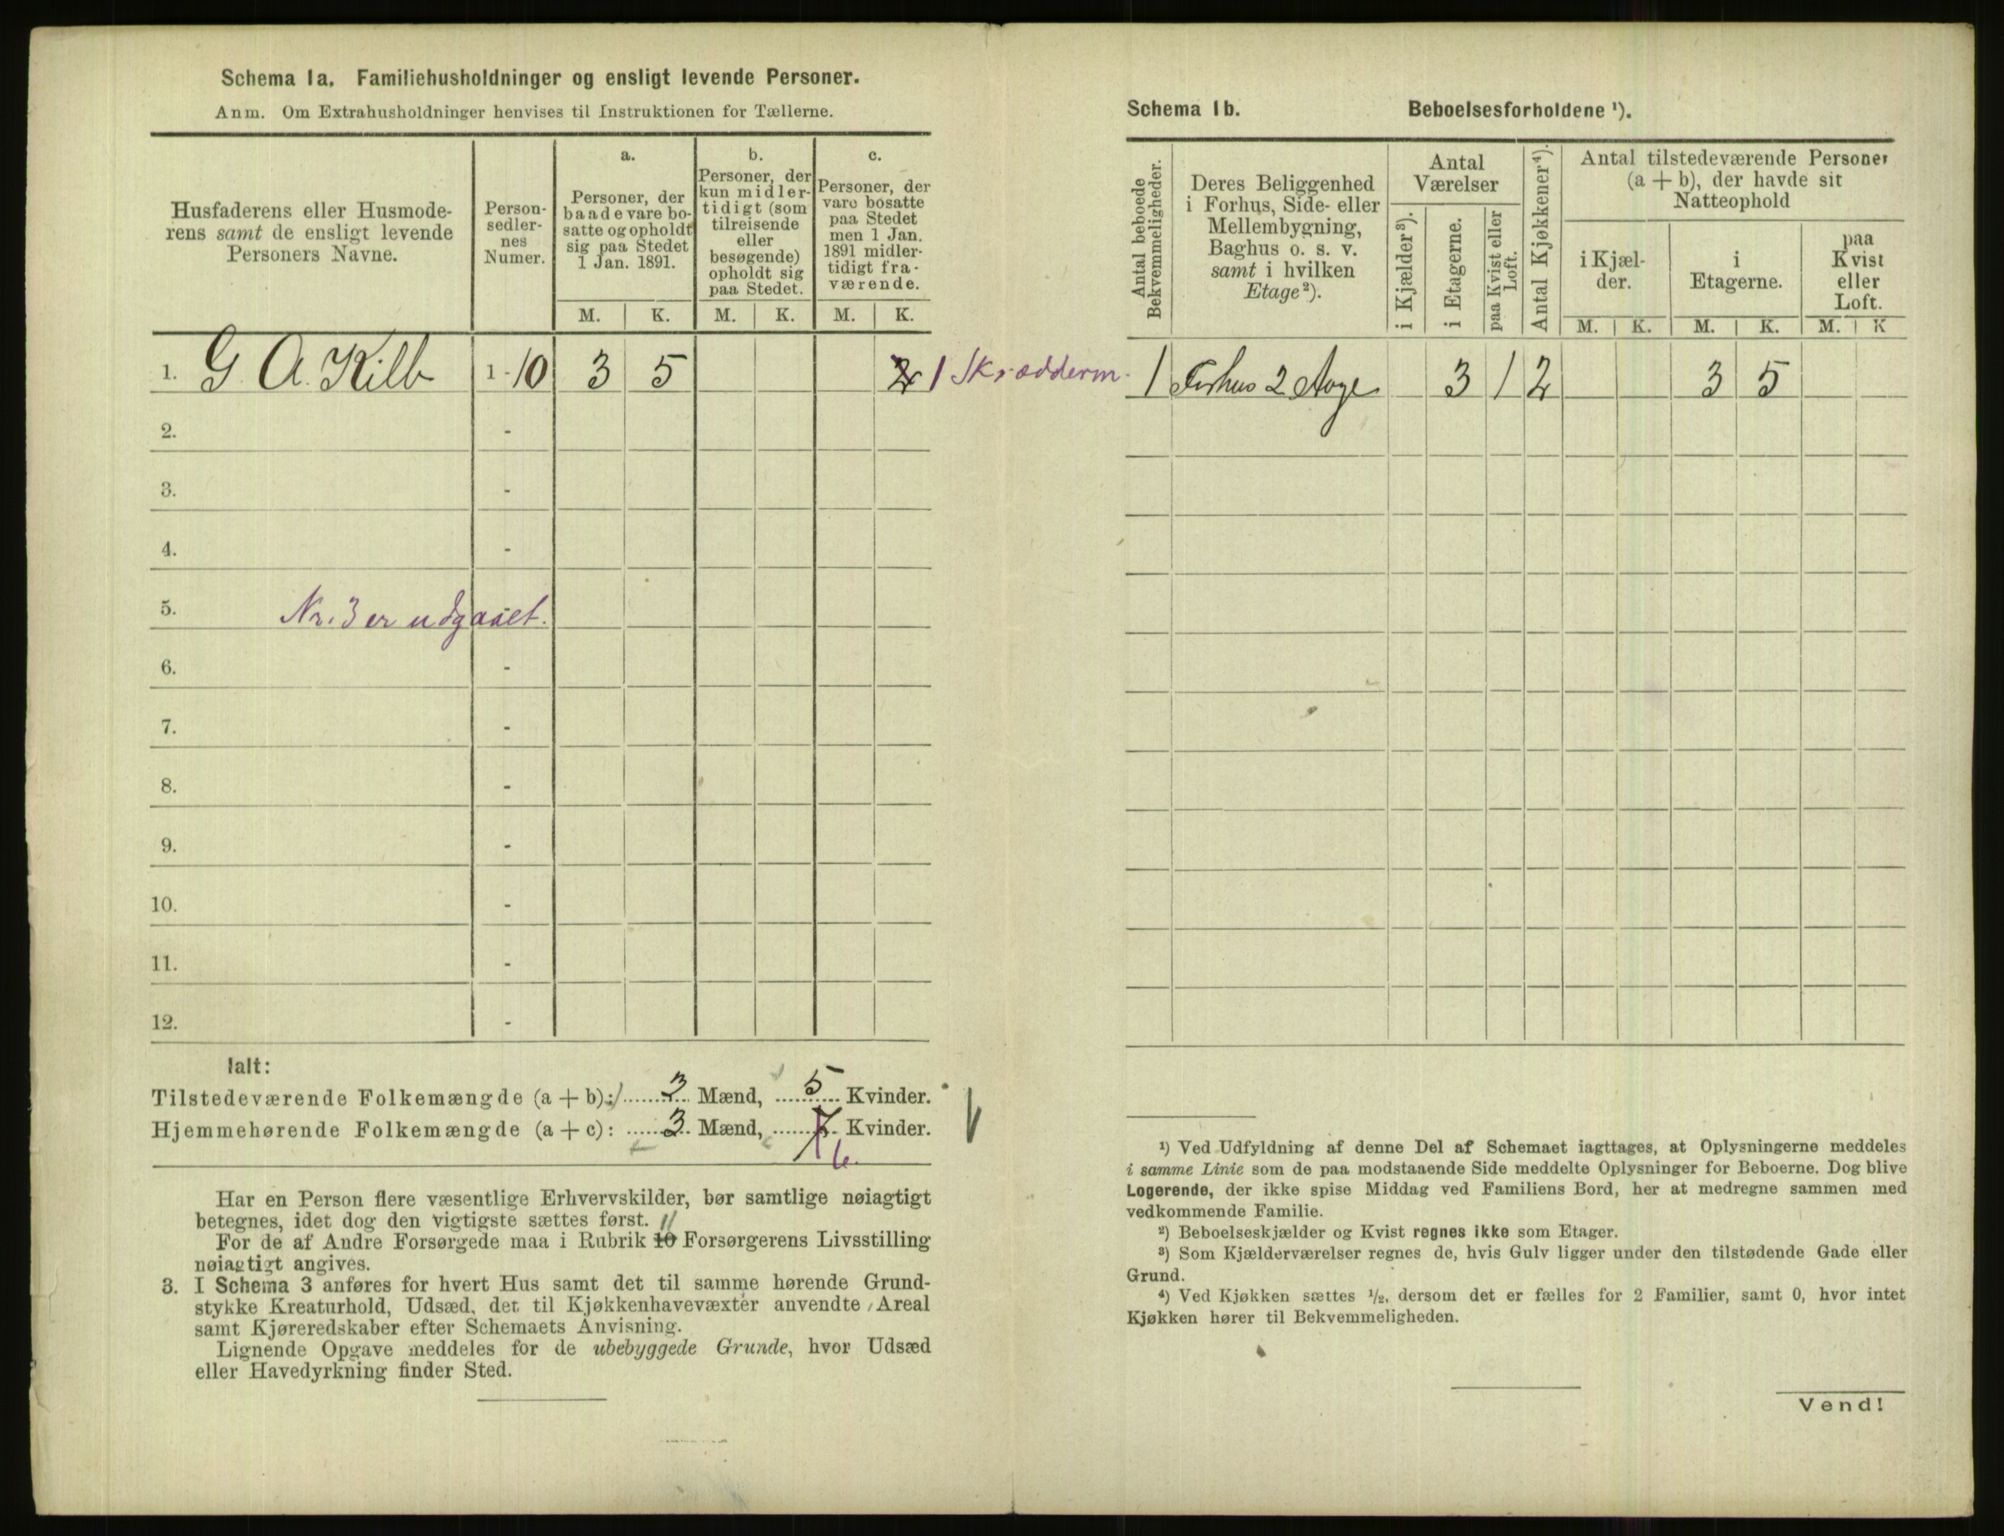 Schema 1a. Familiehusholdninger og ensligt levende Personer.
Anm. Om Extrahusholdninger henvises til Instruktionen for Tællerne.
Husfaderens eller Husmode-
rens samt de ensligt levende
Personers Navne.
Person-
sedler-
nes
Numer.
a.
Personer, der
baade vare bo-
satte og opholdt
sig paa Stedet
1 Jan. 1891.
b.
Personer, der
kun midler-
tidigt (som
tilreisende
eller
besøgende)
opholdt sig
paa Stedet.
c.
Personer, der
vare bosatte
paa Stedet
men 1 Jan.
1891 midler-
tidigt fra-
værende.
M. K. M. K. M. K.
1. G. A. Kilb 1 - 10 3 5 2 1 Skrædderm.
2. -
3. -
4. -
5. Nr. 3 er udgaaet.
6. -
7. -
8. -
9. -
10. -
11. -
12. -
Ialt:
Tilstedeværende Folkemængde (a + b): 3 Mænd, 5 Kvinder.
Hjemmehørende Folkemængde (a + c): 3 Mænd, 7 Kvinder.
6.
Har en Person flere væsentlige Erhvervskilder, bør samtlige nøiagtigt
betegnes, idet dog den vigtigste sættes først.
11
For de af Andre Forsørgede maa i Rubrik 10 Forsørgerens Livsstilling
nøiagtigt angives.
3. I Schema 3 anføres for hvert Hus samt det til samme hørende Grund-
stykke Kreaturhold, Udsæd, det til Kjøkkenhavevæxter anvendte Areal
samt Kjøreredskaber efter Schemaets Anvisning.
Lignende Opgave meddeles for de ubebyggede Grunde, hvor Udsæd
eller Havedyrkning finder Sted.
Schema 1b. Beboelsesforholdene ¹).
Antal beboede
Bekvemmeligheder.
Deres Beliggenhed
i Forhus, Side- eller
Mellembygning,
Baghus o. s. v.
samt i hvilken
Etage²).
Antal
Værelser
i Kjælder³).
i Etagerne.
paa Kvist eller
Loft.
Antal Kjøkkener⁴).
Antal tilstedeværende Personer
(a + b), der havde sit
Natteophold
i Kjæl-
der.
i
Etagerne.
paa
Kvist
eller
Loft.
M. K. M. K. M. K
1 Forhus 2 3 1 2 3 5
¹) Ved Udfyldning af denne Del af Schemaet iagttages, at Oplysningerne meddeles
i samme Linie som de paa modstaaende Side meddelte Oplysninger for Beboerne. Dog blive
Logerende, der ikke spise Middag ved Familiens Bord, her at medregne sammen med
vedkommende Familie.
²) Beboelseskjælder og Kvist regnes ikke som Etager.
³) Som Kjælderværelser regnes de, hvis Gulv ligger under den tilstødende Gade eller
Grund.
⁴) Ved Kjøkken sættes ½, dersom det er fælles for 2 Familier, samt 0, hvor intet
Kjøkken hører til Bekvemmeligheden.
Vend!